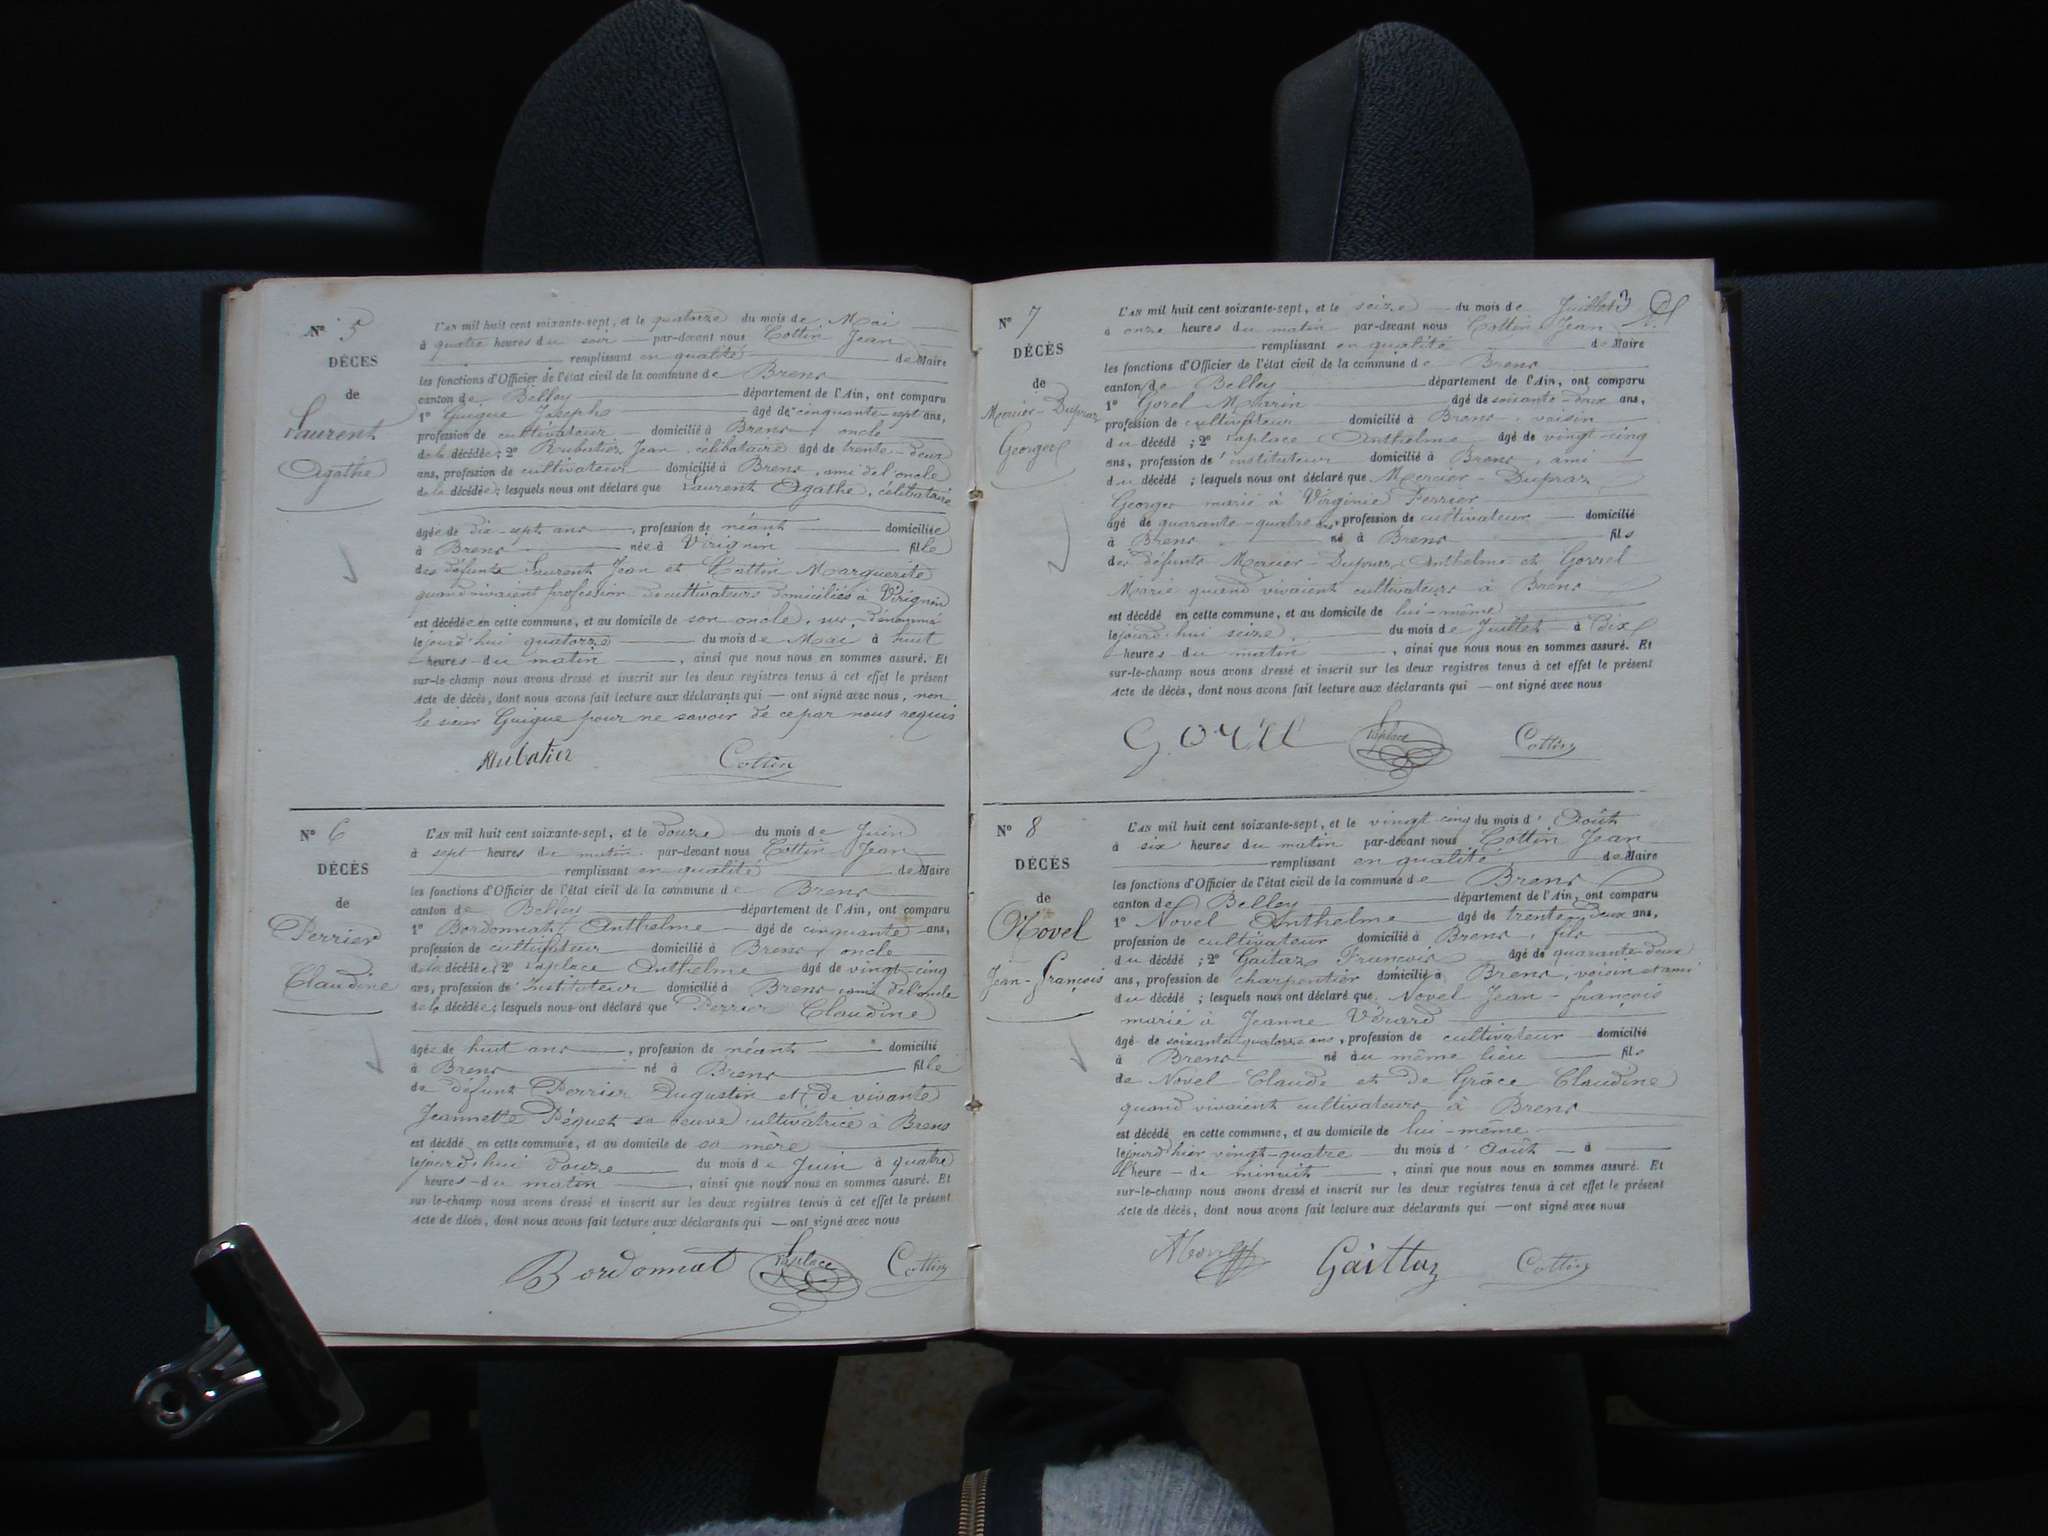 N° 5
DÉCÈS
de
Laurent
Agathe
L'AN mil huit cent soixante-sept, et le quatorze du mois de Mai
à quatre heures du soir par-devant nous Cottin Jean
remplissant en qualité de Maire
les fonctions d'Officier de l'état civil de la commune de Brens
canton de Belley département de l'Ain, ont comparu
1° Guigue Joseph âgé de cinquante-sept ans,
profession de cultivateur domicilié à Brens, oncle
de la décédée; 2° Rubatier Jean, célibataire âgé de trente-deux
ans, profession de cultivateur domicilié à Brens, ami de l'oncle
de la décédée; lesquels nous ont déclaré que Laurent Agathe, célibataire
âgée de dix-sept ans, profession de néant domiciliée
à Brens née à Virignin fille
des défunts Laurent Jean et Cottin Marguerite
quand vivaient profession de cultivateurs domiciliés à Virignin
est décédée en cette commune, et au domicile de son oncle, sus-dénommé
lejourd'hui quatorze du mois de Mai à huit
heures du matin, ainsi que nous nous en sommes assuré. Et
sur-le-champ nous avons dressé et inscrit sur les deux registres tenus à cet effet le présent
Acte de décès, dont nous avons fait lecture aux déclarants qui — ont signé avec nous, non
le sieur Guigue pour ne savoir de ce par nous requis
Rubatier Cottin
N° 6
DÉCÈS
de
Perrier
Claudine
L'AN mil huit cent soixante-sept, et le douze du mois de Juin
à sept heures du matin par-devant nous Cottin Jean
remplissant en qualité de Maire
les fonctions d'Officier de l'état civil de la commune de Brens
canton de Belley département de l'Ain, ont comparu
1° Bordonnat Anthelme âgé de cinquante ans,
profession de cultivateur domicilié à Brens, oncle
de la décédée; 2° Laplace Anthelme âgé de vingt-cinq
ans, profession de instituteur domicilié à Brens, ami de l'oncle
de la décédée; lesquels nous ont déclaré que Perrier Claudine
âgée de huit ans, profession de néant domicilié
à Brens né à Brens fille
de défunt Perrier Augustin et de vivante
Jeannette Péquet sa veuve cultivatrice à Brens
est décédé en cette commune, et au domicile de sa mère
lejourd'hui douze du mois de Juin à quatre
heures du matin, ainsi que nous nous en sommes assuré. Et
sur-le-champ nous avons dressé et inscrit sur les deux registres tenus à cet effet le présent
Acte de décès, dont nous avons fait lecture aux déclarants qui — ont signé avec nous
Bordonnat Laplace Cottin
3
N° 7
DÉCÈS
de
Mercier-Dupraz
Georges
L'AN mil huit cent soixante-sept, et le seize du mois de Juillet
à onze heures du matin par-devant nous Cottin Jean
remplissant en qualité de Maire
les fonctions d'Officier de l'état civil de la commune de Brens
canton de Belley département de l'Ain, ont comparu
1° Gorel Marin âgé de soixante-deux ans,
profession de cultivateur domicilié à Brens, voisin
du décédé; 2° Laplace Anthelme âgé de vingt-cinq
ans, profession d'instituteur domicilié à Brens, ami
du décédé; lesquels nous ont déclaré que Mercier-Dupraz
Georges marié à Virginie Perrier
âgé de quarante-quatre ans, profession de cultivateur domicilié
à Brens né à Brens fils
des défunts Mercier-Dupraz Anthelme et Gorrel
Marie quand vivaient cultivateurs à Brens
est décédé en cette commune, et au domicile de lui-même
lejourd'hui seize du mois de Juillet à Dix
heures du matin, ainsi que nous nous en sommes assuré. Et
sur-le-champ nous avons dressé et inscrit sur les deux registres tenus à cet effet le présent
Acte de décès, dont nous avons fait lecture aux déclarants qui — ont signé avec nous
Laplace Cottin
N° 8
DÉCÈS
de
Novel
Jean-François
L'AN mil huit cent soixante-sept, et le vingt-cinq du mois d'Août
à six heures du matin par-devant nous Cottin Jean
remplissant en qualité de Maire
les fonctions d'Officier de l'état civil de la commune de Brens
canton de Belley département de l'Ain, ont comparu
1° Novel Anthelme âgé de trente-deux ans,
profession de cultivateur domicilié à Brens, fils
du décédé; 2° Gaitaz François âgé de quarante-deux
ans, profession de charpentier domicilié à Brens, voisin et ami
du décédé; lesquels nous ont déclaré que Novel Jean-françois
marié à Jeanne Vérard
âgé de soixante-quatorze ans, profession de cultivateur domicilié
à Brens né au même lieu fils
de Novel Claude et de Grâce Claudine
quand vivaient cultivateurs à Brens
est décédé en cette commune, et au domicile de lui-même
lejourd'hier vingt-quatre du mois d'Août à
l'heure de minuit, ainsi que nous nous en sommes assuré. Et
sur-le-champ nous avons dressé et inscrit sur les deux registres tenus à cet effet le présent
Acte de décès, dont nous avons fait lecture aux déclarants qui — ont signé avec nous
Novel Gaittaz Cottin